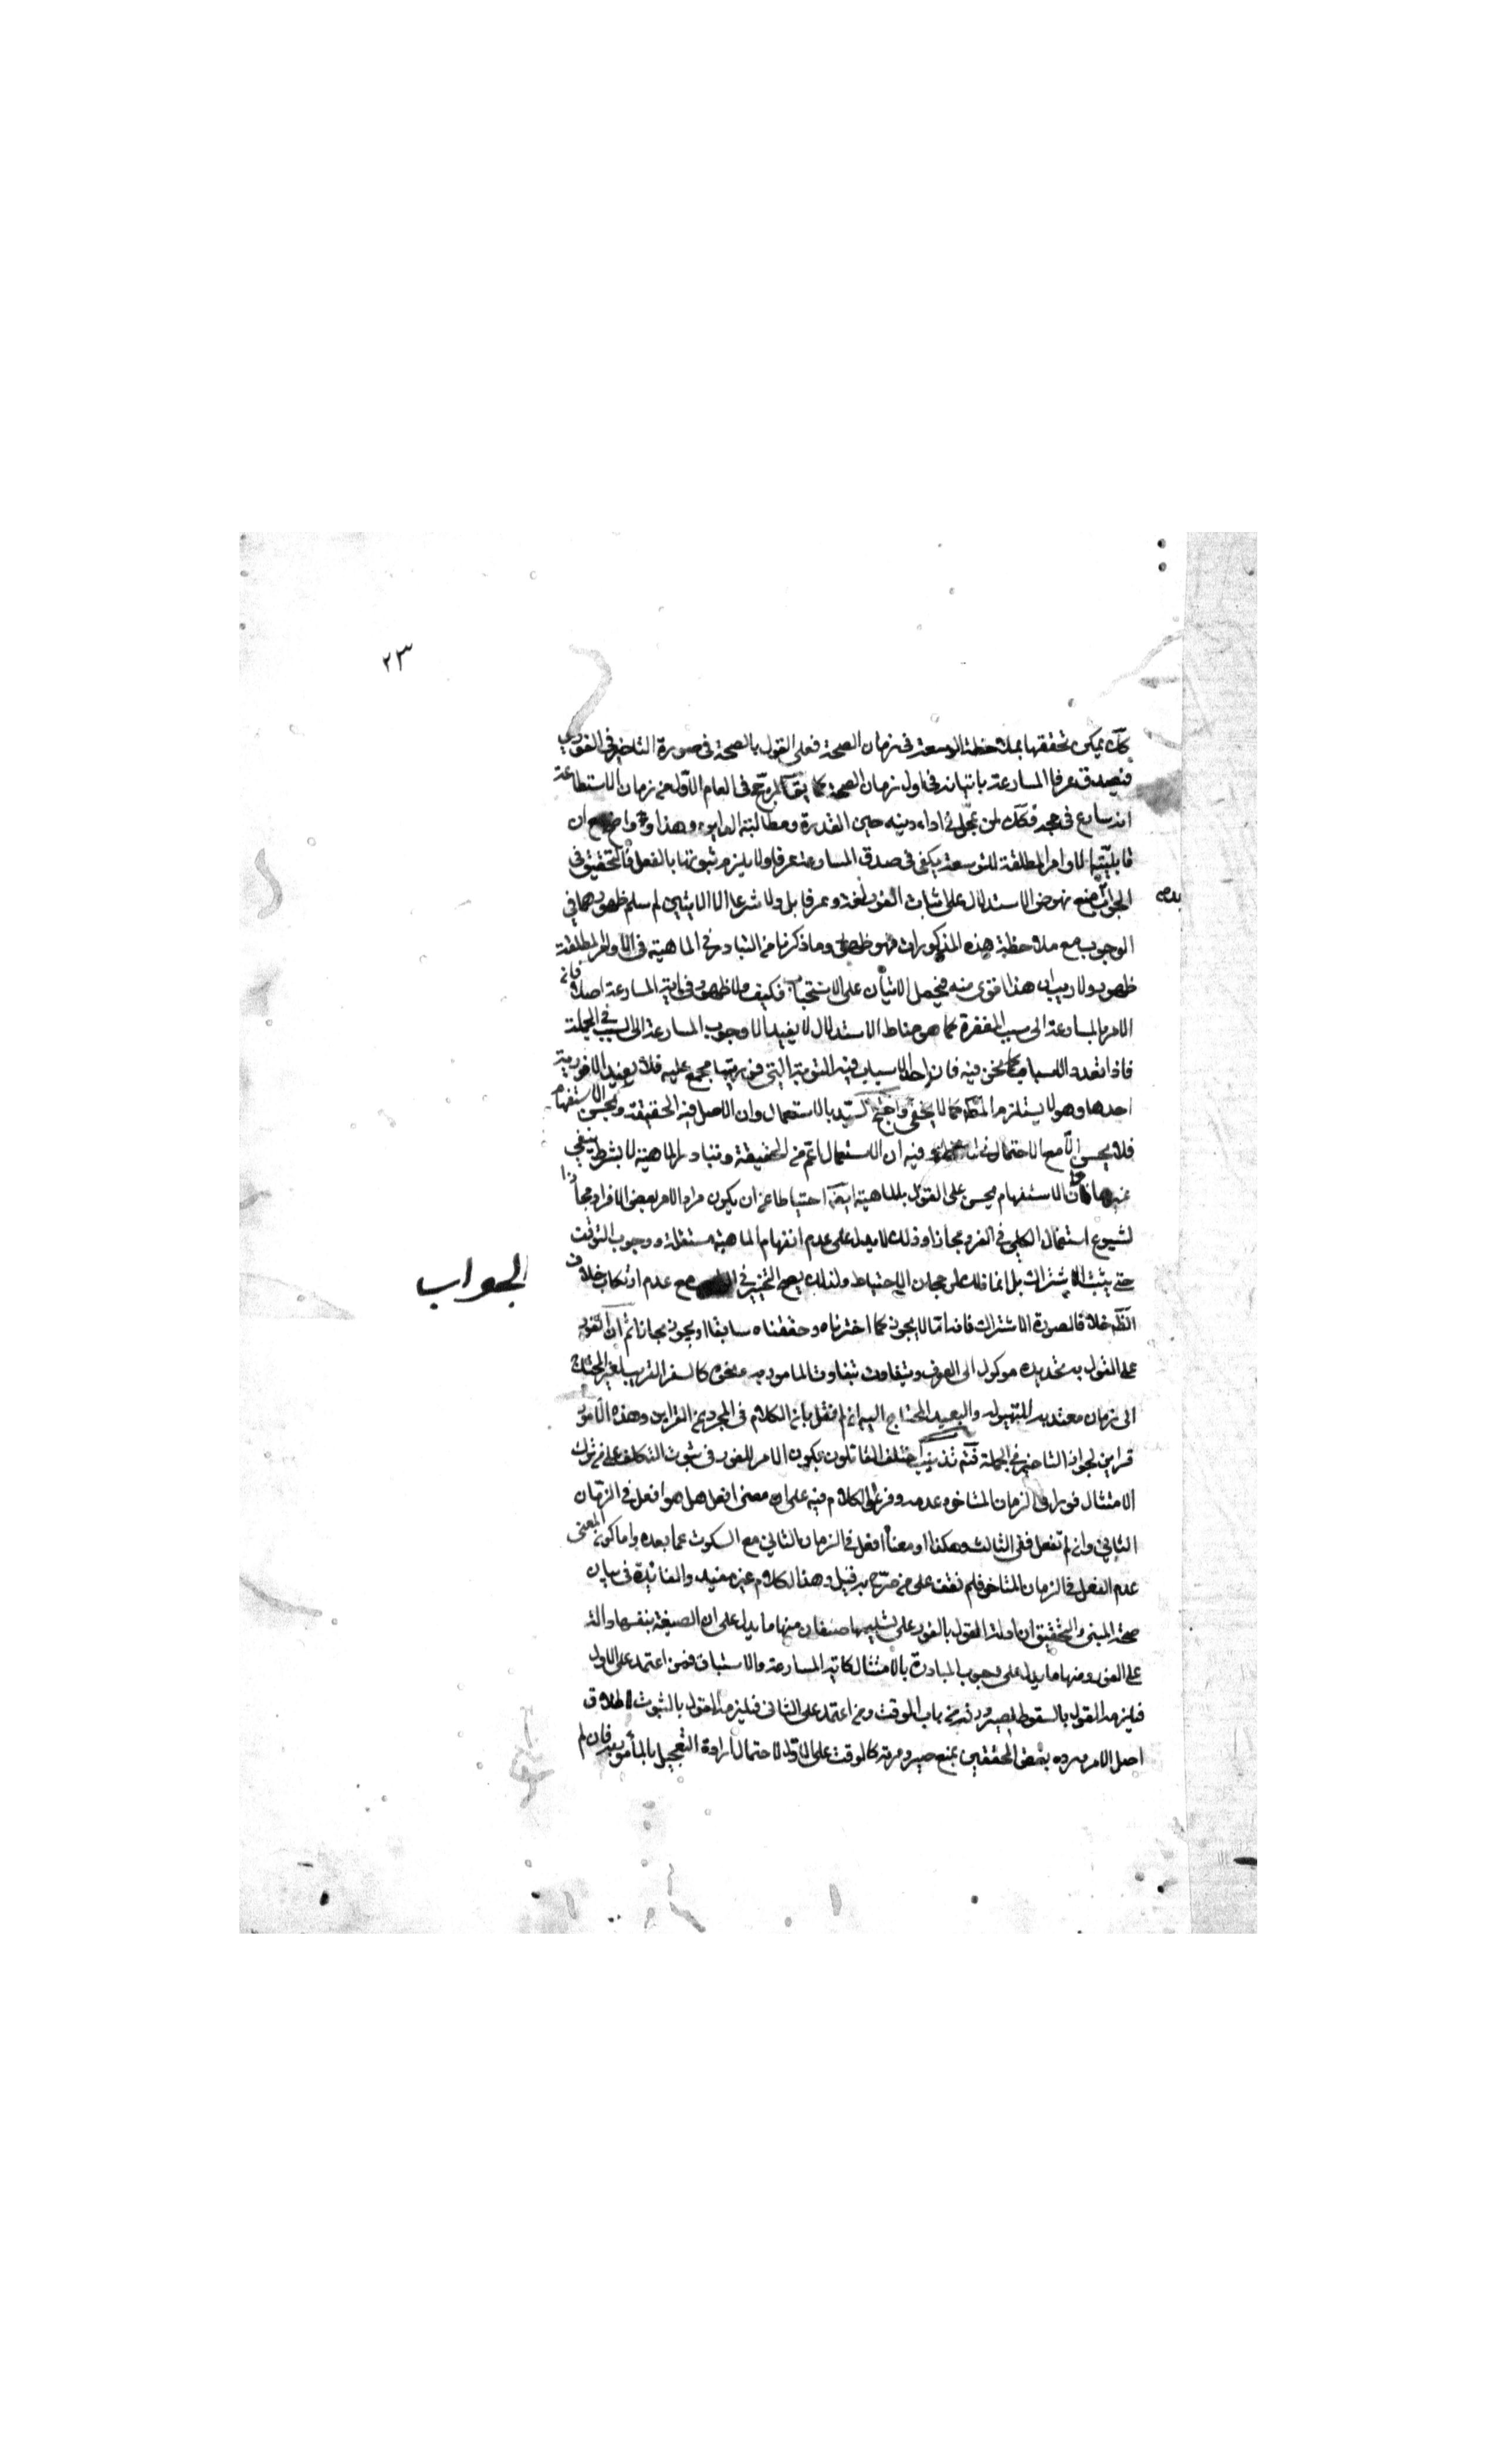 ٢٣
كك يمكن تحققها بملاحظة الوسعة فى زمان الصحة فعلى القول بالصحة فى صورة التاخير فى الفورى
فيصدق عرفا المسارعة باتيانه فى اول زمان الصحة كما يقال لمن حج فى العام الاول من زمان الاستطاعة
انه سارع فى حجه فكك لمن عجل فى اداء دينه حين القدرة ومطالبة الغرماء وهذا واضح ان
قابلية الاوامر المطلقة للتوسعة يكفى فى صدق المسارعة عرفا ولا يلزم ثبوتها بالفعل فالتحقيق فى
الجواب منع نهوض الاستدلال على اثبات الفور لغة وعرفا بل ولا شرعا الا الايتين لم سلم ظهورهما فى
الوجوب مع ملاحظة هذه المذكورات فهو ظهور وما ذكرنا من التبادر فى الماهية فى الاوامر المطلقة
ظهور ولا ريب ان هذا اقوى منه فيحمل الاتيان على الاستحباب فكيف ولا ظهور فى اية المسارعة اصلا فان
الامر بالمسارعة الى سبب المغفرة كما هو مناط الاستدلال لا يفيد الا وجوب المسارعة الى السبب فى الجملة
فاذا تعدد الاسباب كما نحن فيه فان احد الاسباب فيه التوبة التى فوريتها مجمع عليه فلا يفيد الا فورية
احدها وهو لا يستلزم المط كما لا يخفى واحتج السيد بالاستعمال وان الاصل فيه الحقيقة وبحسن الاستفهام
فلا يحسن الا مع الاحتمال وفيه ان الاستعمال اعم من الحقيقة وتبادر الماهية لا بشرط ينفى
غيرها وان الاستفهام يحسن على القول بالماهية ايضا احتياطا عن ان يكون مراد الامر بعض الافراد مجازا
لشيوع استعمال الكلى فى الفرد مجازا وذلك لا يدل على عدم انفهام الماهية مستقلة ووجوب التوقف
حتى يثبت الاشتراك بل انما ذلك على الاحتياط ولذلك يصح التخيير فى مع عدم ارتكاب خلاف
الظ خلافا لصورة الاشتراك فانه اما لا يجوز كما اخترناه وحققناه سابقا او يجوز مجازا ثم ان الفور
على القول به تحديده موكول الى العرف ويتفاوت بتفاوت المامور به ونحوه كالسفر القريب الغير المحتاج
الى زمان معتد به للتهيؤ له والبعيد المحتاج اليه ان لم نقل بان الكلام فى المجرد عن القراين وهذه الامور
قراين لجواز التاخير فى الجملة فتم تذنيب اختلف القائلون بكون الامر للفور فى ثبوت التكليف على من ترك
الامتثال فورا فى الزمان المتاخر وعدمه وفرعوا الكلام فيه على ان معنى افعل هل هو افعل فى الزمان
الثانى وان لم تفعل ففى الثالث وهكذا او معناه افعل فى الزمان الثانى مع السكوت عما بعده واما كون المعنى
عدم الفعل فى الزمان المتاخر فلم نقف على من صرح به قبل وهذا الكلام غير مفيد والفائدة فى بيان
صحة المبنى والتحقيق ان ادلة القول بالفور على تسليمها صنفان منها ما يدل على ان الصيغة بنفسها دالة
على الفور ومنها ما يدل على وجوب المبادرة بالامتثال كاية المسارعة والاستباق فمن اعتمد على الاول
فيلزمه القول بالسقوط لصيرورته من باب الموقت ومن اعتمد على الثانى فيلزمه القول بالثبوت لاطلاق
اصل الامر ورده بعض المحققين بمنع صيرورته كالموقت على الاول لاحتمال ارادة التعجيل بالمأمور به فان لم
الجواب